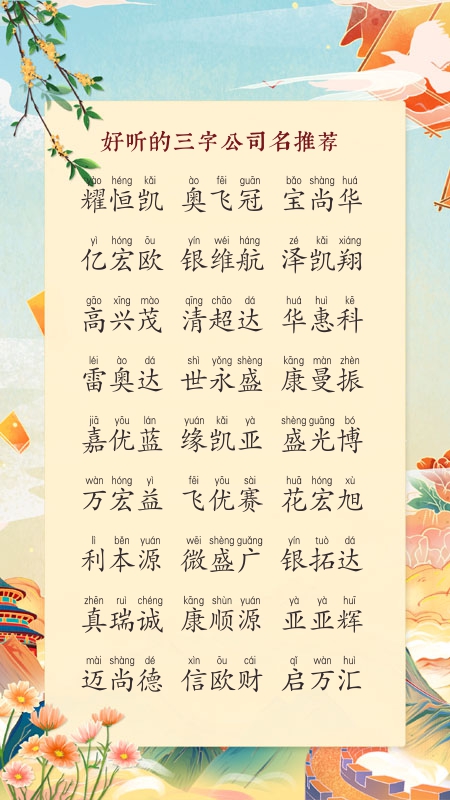 好听的三字公司名推荐
yào héng kǎi ào fēi guān bǎo shàng huá
耀恒凯 奥飞冠 宝尚华
yì hóng ōu yín wéi háng zé kǎi xiáng
亿宏欧 银维航 泽凯翔
gāo xīng mào qīng chāo dá huá huì kē
高兴茂 清超达 华惠科
léi ào dá shì yǒng shèng kāng màn zhèn
雷奥达 世永盛 康曼振
jiā yōu lán yuán kǎi yà shèng guāng bó
嘉优蓝 缘凯亚 盛光博
wàn hóng yì fēi yōu sài huā hóng xù
万宏益 飞优赛 花宏旭
lì běn yuán wēi shèng guǎng yín tuò dá
利本源 微盛广 银拓达
zhēn ruì chéng kāng shùn yuán yà yà huī
真瑞诚 康顺源 亚亚辉
mài shàng dé xìn ōu cái qǐ wàn huì
迈尚德 信欧财 启万汇